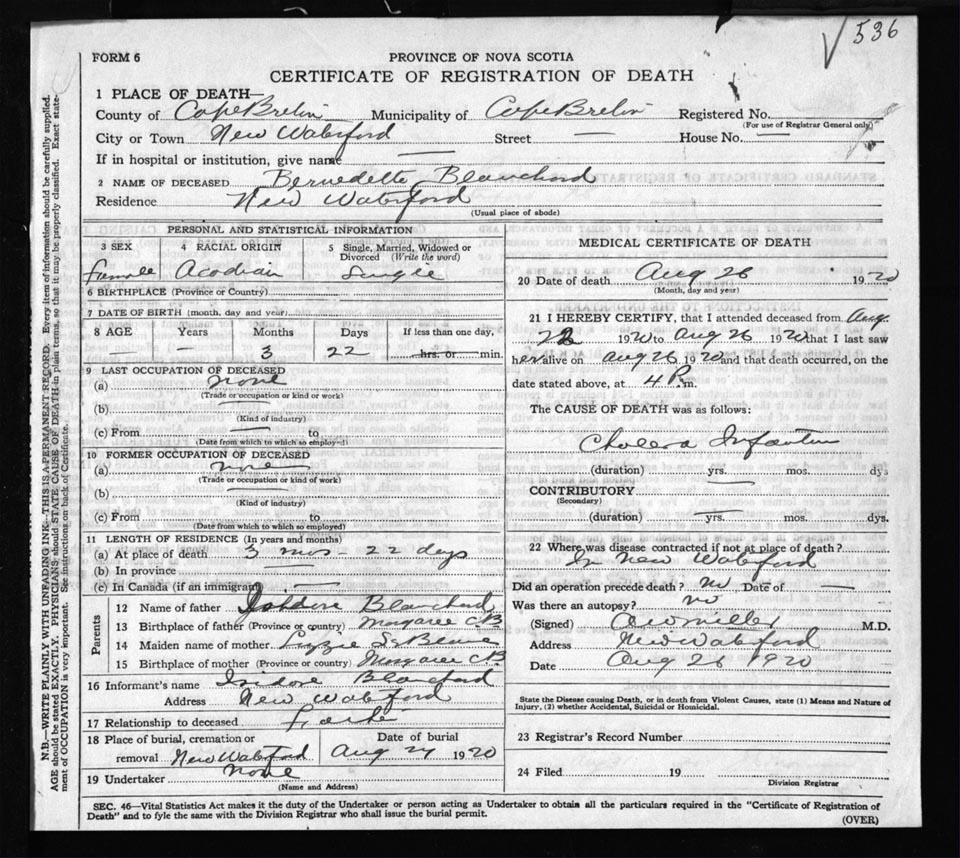 536
FORM 6
PROVINCE OF NOVA SCOTIA
CERTIFICATE OF REGISTRATION OF DEATH
1 PLACE OF DEATH—
County of Cape Breton Municipality of Cape Breton Registered No.
(For use of Registrar General only)
City or Town New Waterford Street — House No. —
If in hospital or institution, give name —
2 NAME OF DECEASED Bernedette Blanchard
Residence New Waterford
(Usual place of abode)
PERSONAL AND STATISTICAL INFORMATION
3 SEX 4 RACIAL ORIGIN 5 Single, Married, Widowed or Divorced (Write the word)
female Acadian Single
6 BIRTHPLACE (Province or Country)
7 DATE OF BIRTH (month, day and year)
8 AGE Years Months Days If less than one day,
— — 3 22 hrs. or min.
9 LAST OCCUPATION OF DECEASED
(a) none
(Trade or occupation or kind or work)
(b) —
(Kind of industry)
(c) From — to
(Date from which to which so employed)
10 FORMER OCCUPATION OF DECEASED
(a) none
(Trade or occupation or kind of work)
(b) —
(Kind of industry)
(c) From — to
(Date from which to which so employed)
11 LENGTH OF RESIDENCE (In years and months)
(a) At place of death 3 mos - 22 days
(b) In province —
(c) In Canada (if an immigrant) —
Parents
12 Name of father Isidore Blanchard
13 Birthplace of father (Province or country) Margaree C.B
14 Maiden name of mother Lizzie
15 Birthplace of mother (Province or country) Margaree C.B.
16 Informant's name Isidore Blanchard
Address New Waterford
17 Relationship to deceased
18 Place of burial, cremation or Date of burial
removal New Waterford Aug 27 1920
19 Undertaker none
(Name and Address)
MEDICAL CERTIFICATE OF DEATH
20 Date of death Aug 26 1920
(Month, day and year)
21 I HEREBY CERTIFY, that I attended deceased from Aug.
22 1920 to Aug 26 1920 that I last saw
her alive on Aug 26 1920 and that death occurred, on the
date stated above, at 4 P. m.
The CAUSE OF DEATH was as follows:
Cholera Infantum
(duration) — yrs. mos. dys
CONTRIBUTORY
(Secondary)
(duration) — yrs. mos. dys.
22 Where was disease contracted if not at place of death?
In New Waterford
Did an operation precede death? no Date of —
Was there an autopsy? no
(Signed) M.D.
Address New Waterford
Date Aug 26 1920
State the Disease causing Death, or in death from Violent Causes, state (1) Means and Nature of
Injury, (2) whether Accidental, Suicidal or Homicidal.
23 Registrar's Record Number
24 Filed 19
Division Registrar
SEC. 46—Vital Statistics Act makes it the duty of the Undertaker or person acting as Undertaker to obtain all the particulars required in the "Certificate of Registration of
Death" and to fyle the same with the Division Registrar who shall issue the burial permit.
(OVER)
N.B.—WRITE PLAINLY WITH UNFADING INK—THIS IS A PERMANENT RECORD. Every item of information should be carefully supplied.
AGE should be stated EXACTLY. PHYSICIANS should STATE CAUSE OF DEATH in plain terms, so that it may be properly classified. Exact state-
ment of OCCUPATION is very important. See instructions on back of Certificate.